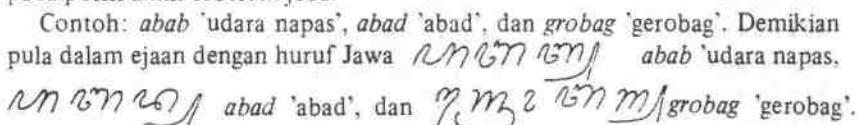 Contoh: abab 'udara napas', abad 'abad', dan grobag 'gerobag'. Demikian
pula dalam ejaan dengan huruf Jawa ꦲꦧꦧ꧀ abab 'udara napas,
ꦲꦧꦢ꧀ abad 'abad', dan ꦒꦿꦺꦴꦧꦒ꧀ grobag 'gerobag'.